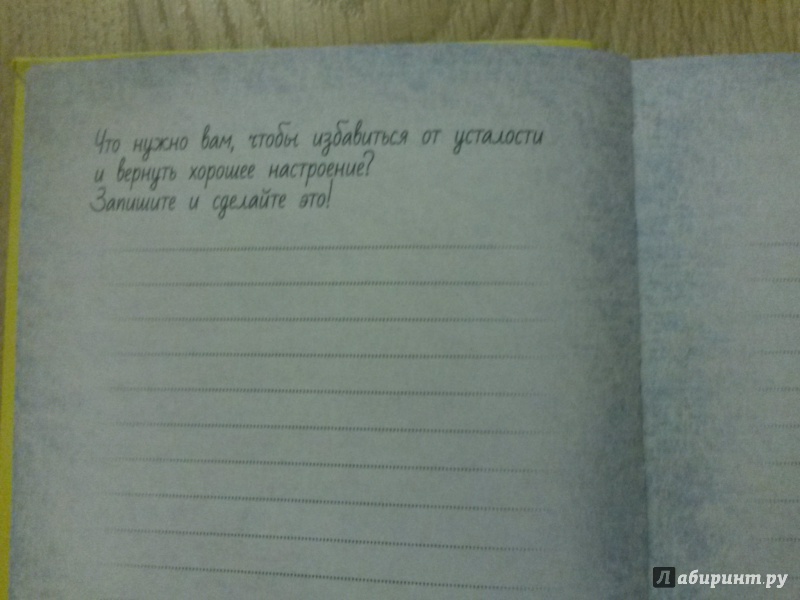 Что нужно вам, чтобы избавиться от усталости
и вернуть хорошее настроение?
Запишите и сделайте это!
Лабиринт.ру